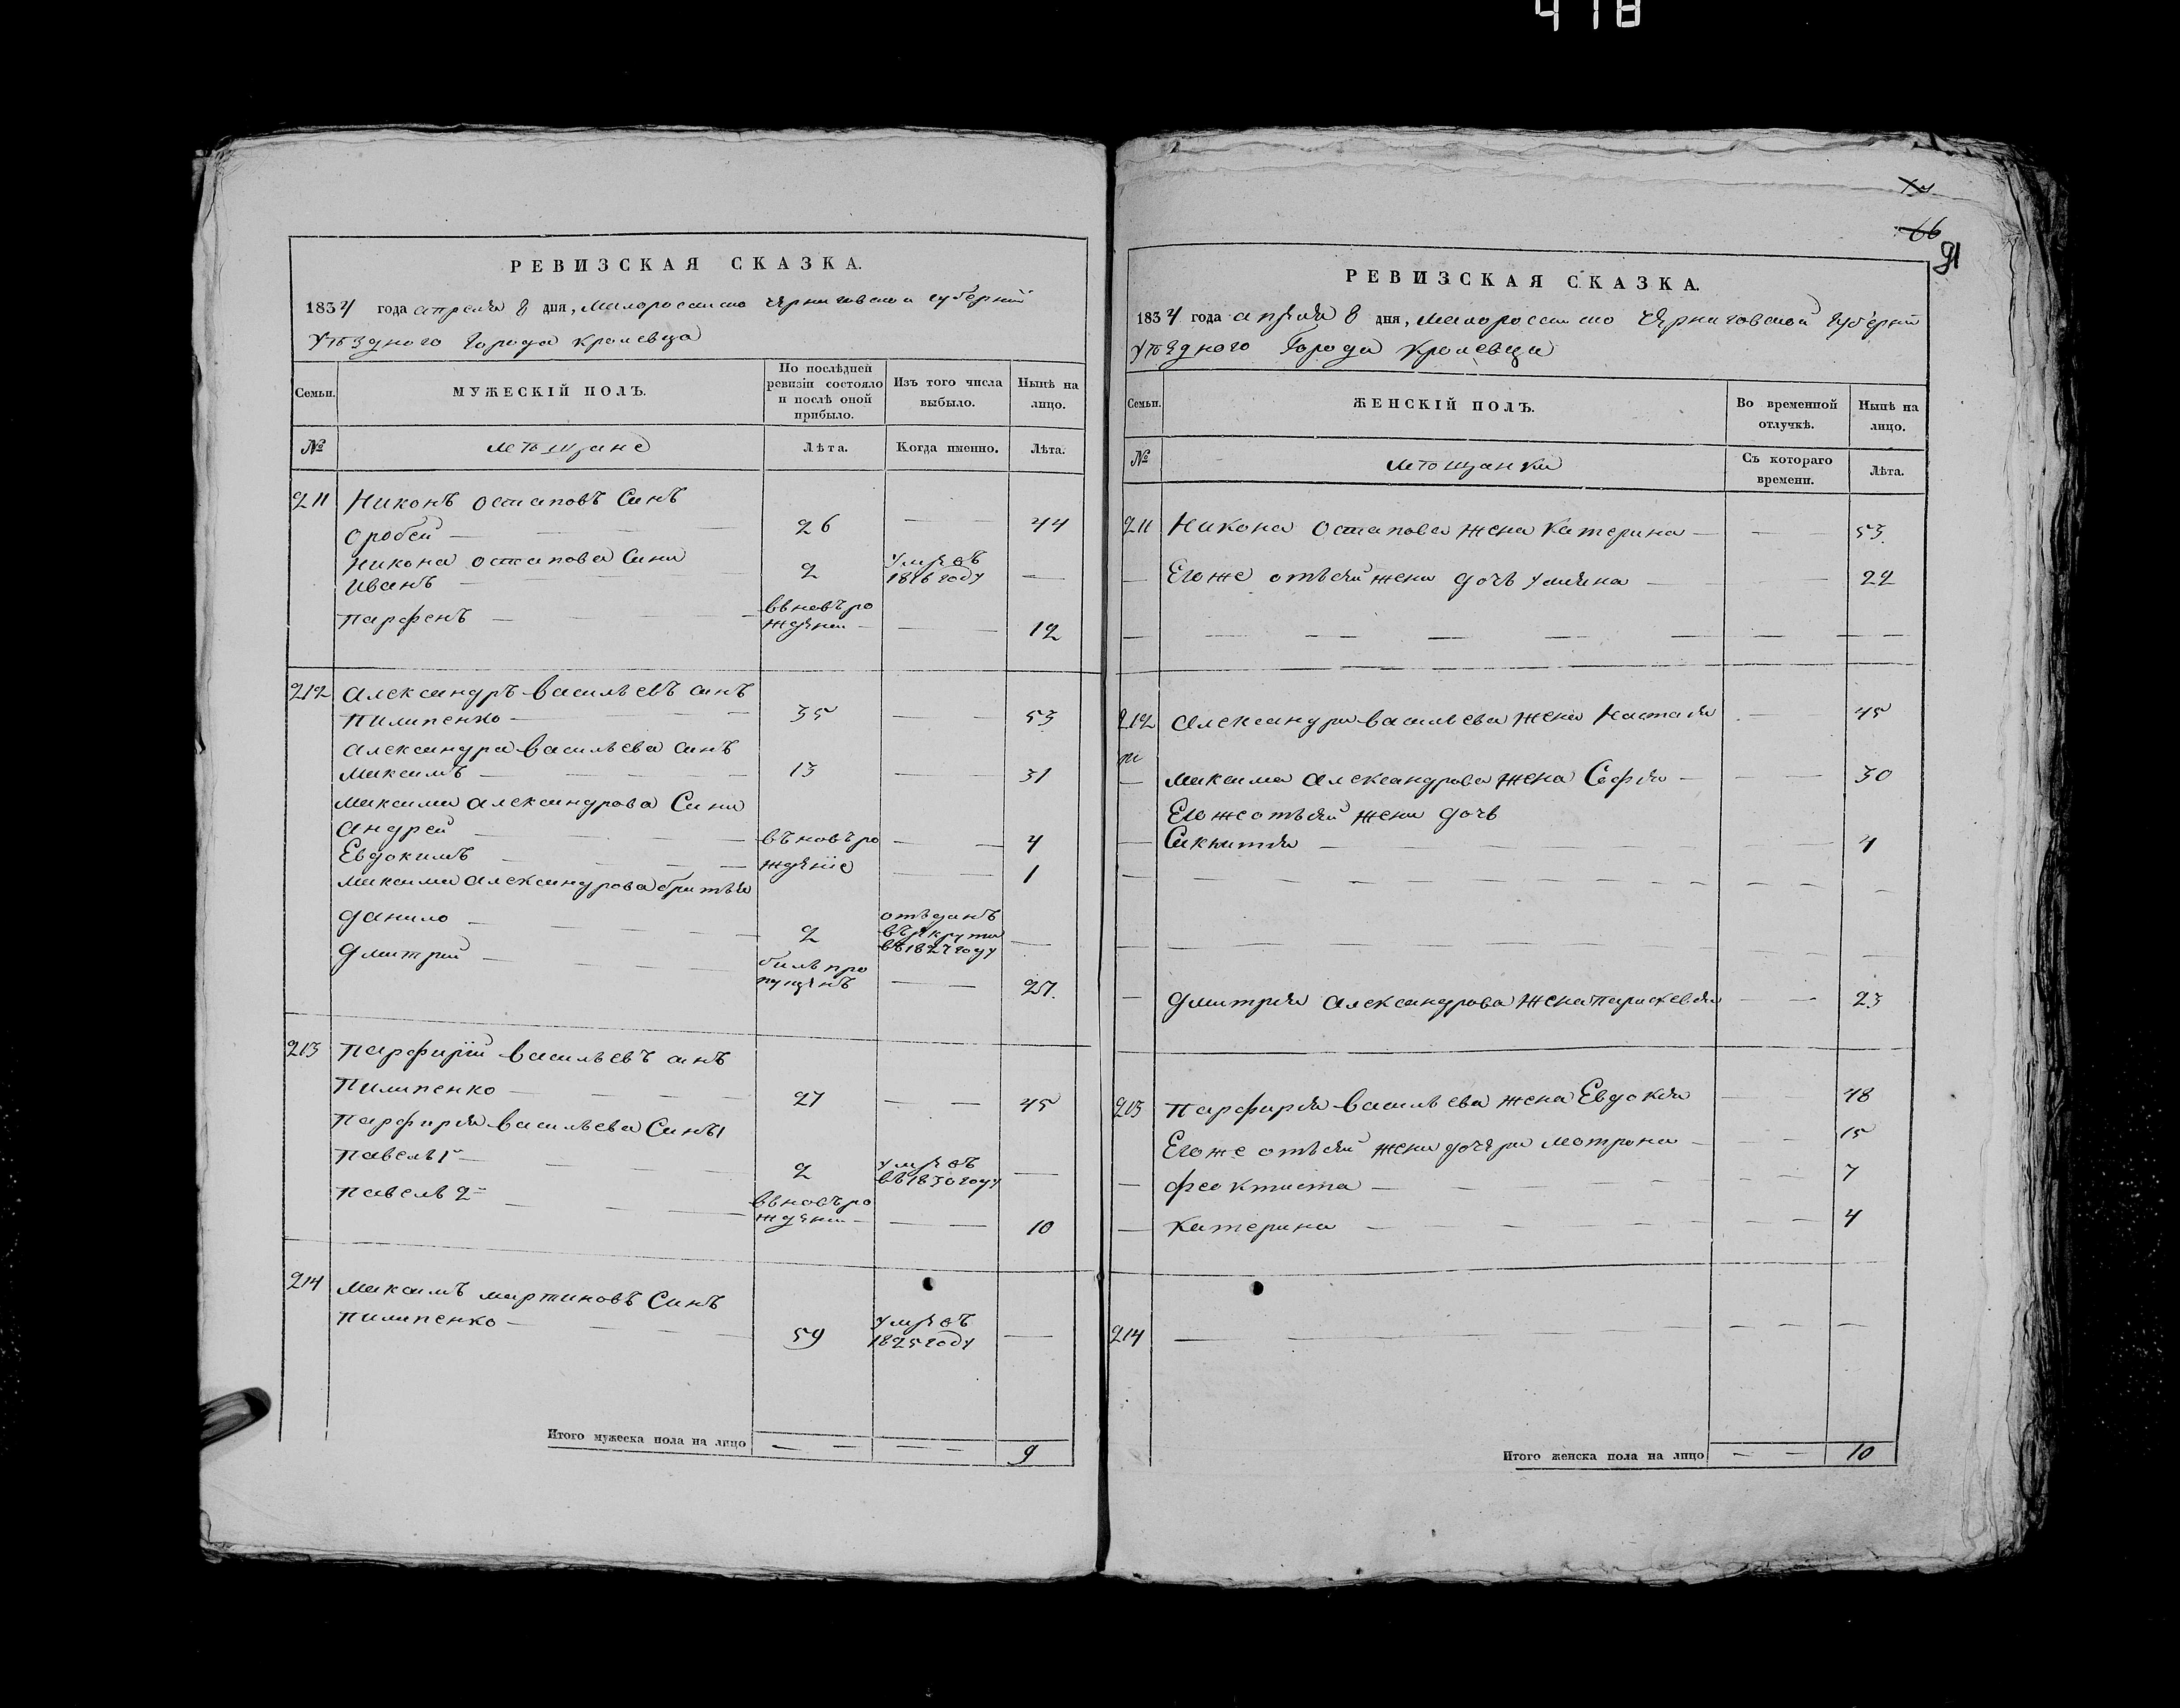 418
РЕВИЗСКАЯ СКАЗКА.
1834 года апреля 8 дня, Малороссийско Черниговской губернии
уѣзднаго города Кролевца
Семьи.
МУЖЕСКІЙ ПОЛЪ.
По послѣдней ревизіи состояло и послѣ оной прибыло.
Изъ того числа выбыло.
Нынѣ на лицо.
№
мѣщане
Лѣта.
Когда именно.
Лѣта.
211 Никонъ Остаповъ Синъ
Оробей — 26 — 44
Никона Остапова Сини
Иванъ — 2 умре въ 1816 году —
Парфенъ — вьновъ рожденъ — 12
212 Александръ Васильевъ синъ
Пилипенко — 35 — 53
Александра Васильева синъ
Максимъ — 13 — 31
Максима Александрова Сини
Андрей — въновъ ро — 4
Евдокимъ — ждение — 1
Максима Александрова братья
Данило — 2 отъданъ въ рекрута въ 1827 году —
Дмитрий — билъ пропущенъ — 27.
213 Парфирій Васильевъ синъ
Пилипенко — 27 — 45
Парфирія Васильева Сины
Павелъ 1й — 2 умре въ въ 1830 году —
Павелъ 2й — вьновъ рождени — 10
214 Максимъ Мартиновъ Синъ
Пилипенко — 59 умре въ 1825 году —
Итого мужеска пола на лицо — — 9
66
91
РЕВИЗСКАЯ СКАЗКА.
1834 года апреля 8 дня, Малороссийско Черниговской Губернии
уѣзднаго Города Кролевца
Семьи.
ЖЕНСКІЙ ПОЛЪ.
Во временной отлучкѣ.
Нынѣ на лицо.
№
мѣщанки
Съ котораго времени.
Лѣта.
211 Никона Остапова жена Катерина — 53
— Его же отъ сей жени дочъ Уляна — 22
212 Александра Васильева жена Настасия — 45
— Максима Александрова жена Софія — 30
Его же отъ сей жени дочь
— — 4
— Дмитрия Александрова жена Парискевия — 23
213 Парфирія Васильева жена Евдокія — 48
Его же отъ сей жени дочери Мотрона — 15
— Феоктиста — 7
— Катерина — 4
214 —
Итого женска пола на лицо — 10